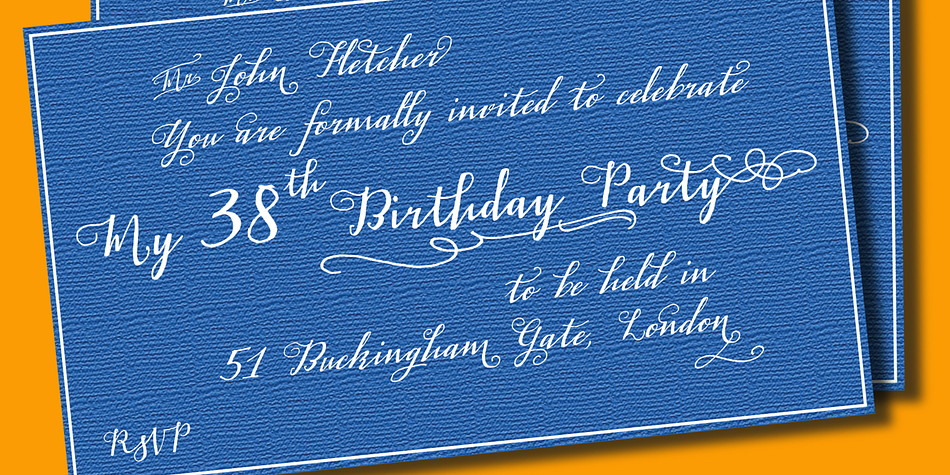 Mr John Fletcher
You are formally invited to celebrate
My 38th Birthday Party
to be held in
51 Buckingham Gate, London
RSVP